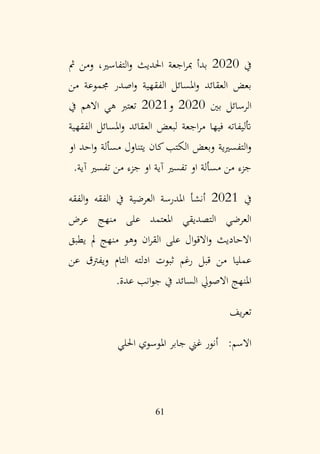 في 2020 بدأ بمراجعة الحديث والتفاسير، ومن ثم
بعض العقائد والمسائل الفقهية واصدر مجموعة من
الرسائل بين 2020 و2021 تعتبر هي الاهم في
تأليفاته فيها مراجعة لبعض العقائد والمسائل الفقهية
والتفسيرية وبعض الكتب كان يتناول مسألة واحد او
جزء من مسألة او تفسير آية او جزء من تفسير آية.
في 2021 أنشأ المدرسة العرضية في الفقه والفقه
العرضي التصديقي المعتمد على منهج عرض
الاحاديث والاقوال على القران وهو منهج لم يطبق
عمليا من قبل رغم ثبوت ادلته التام ويفترق عن
المنهج الاصولي السائد في جوانب عدة.
تعريف
الاسم: أنور غني جابر الموسوي الحلي
61